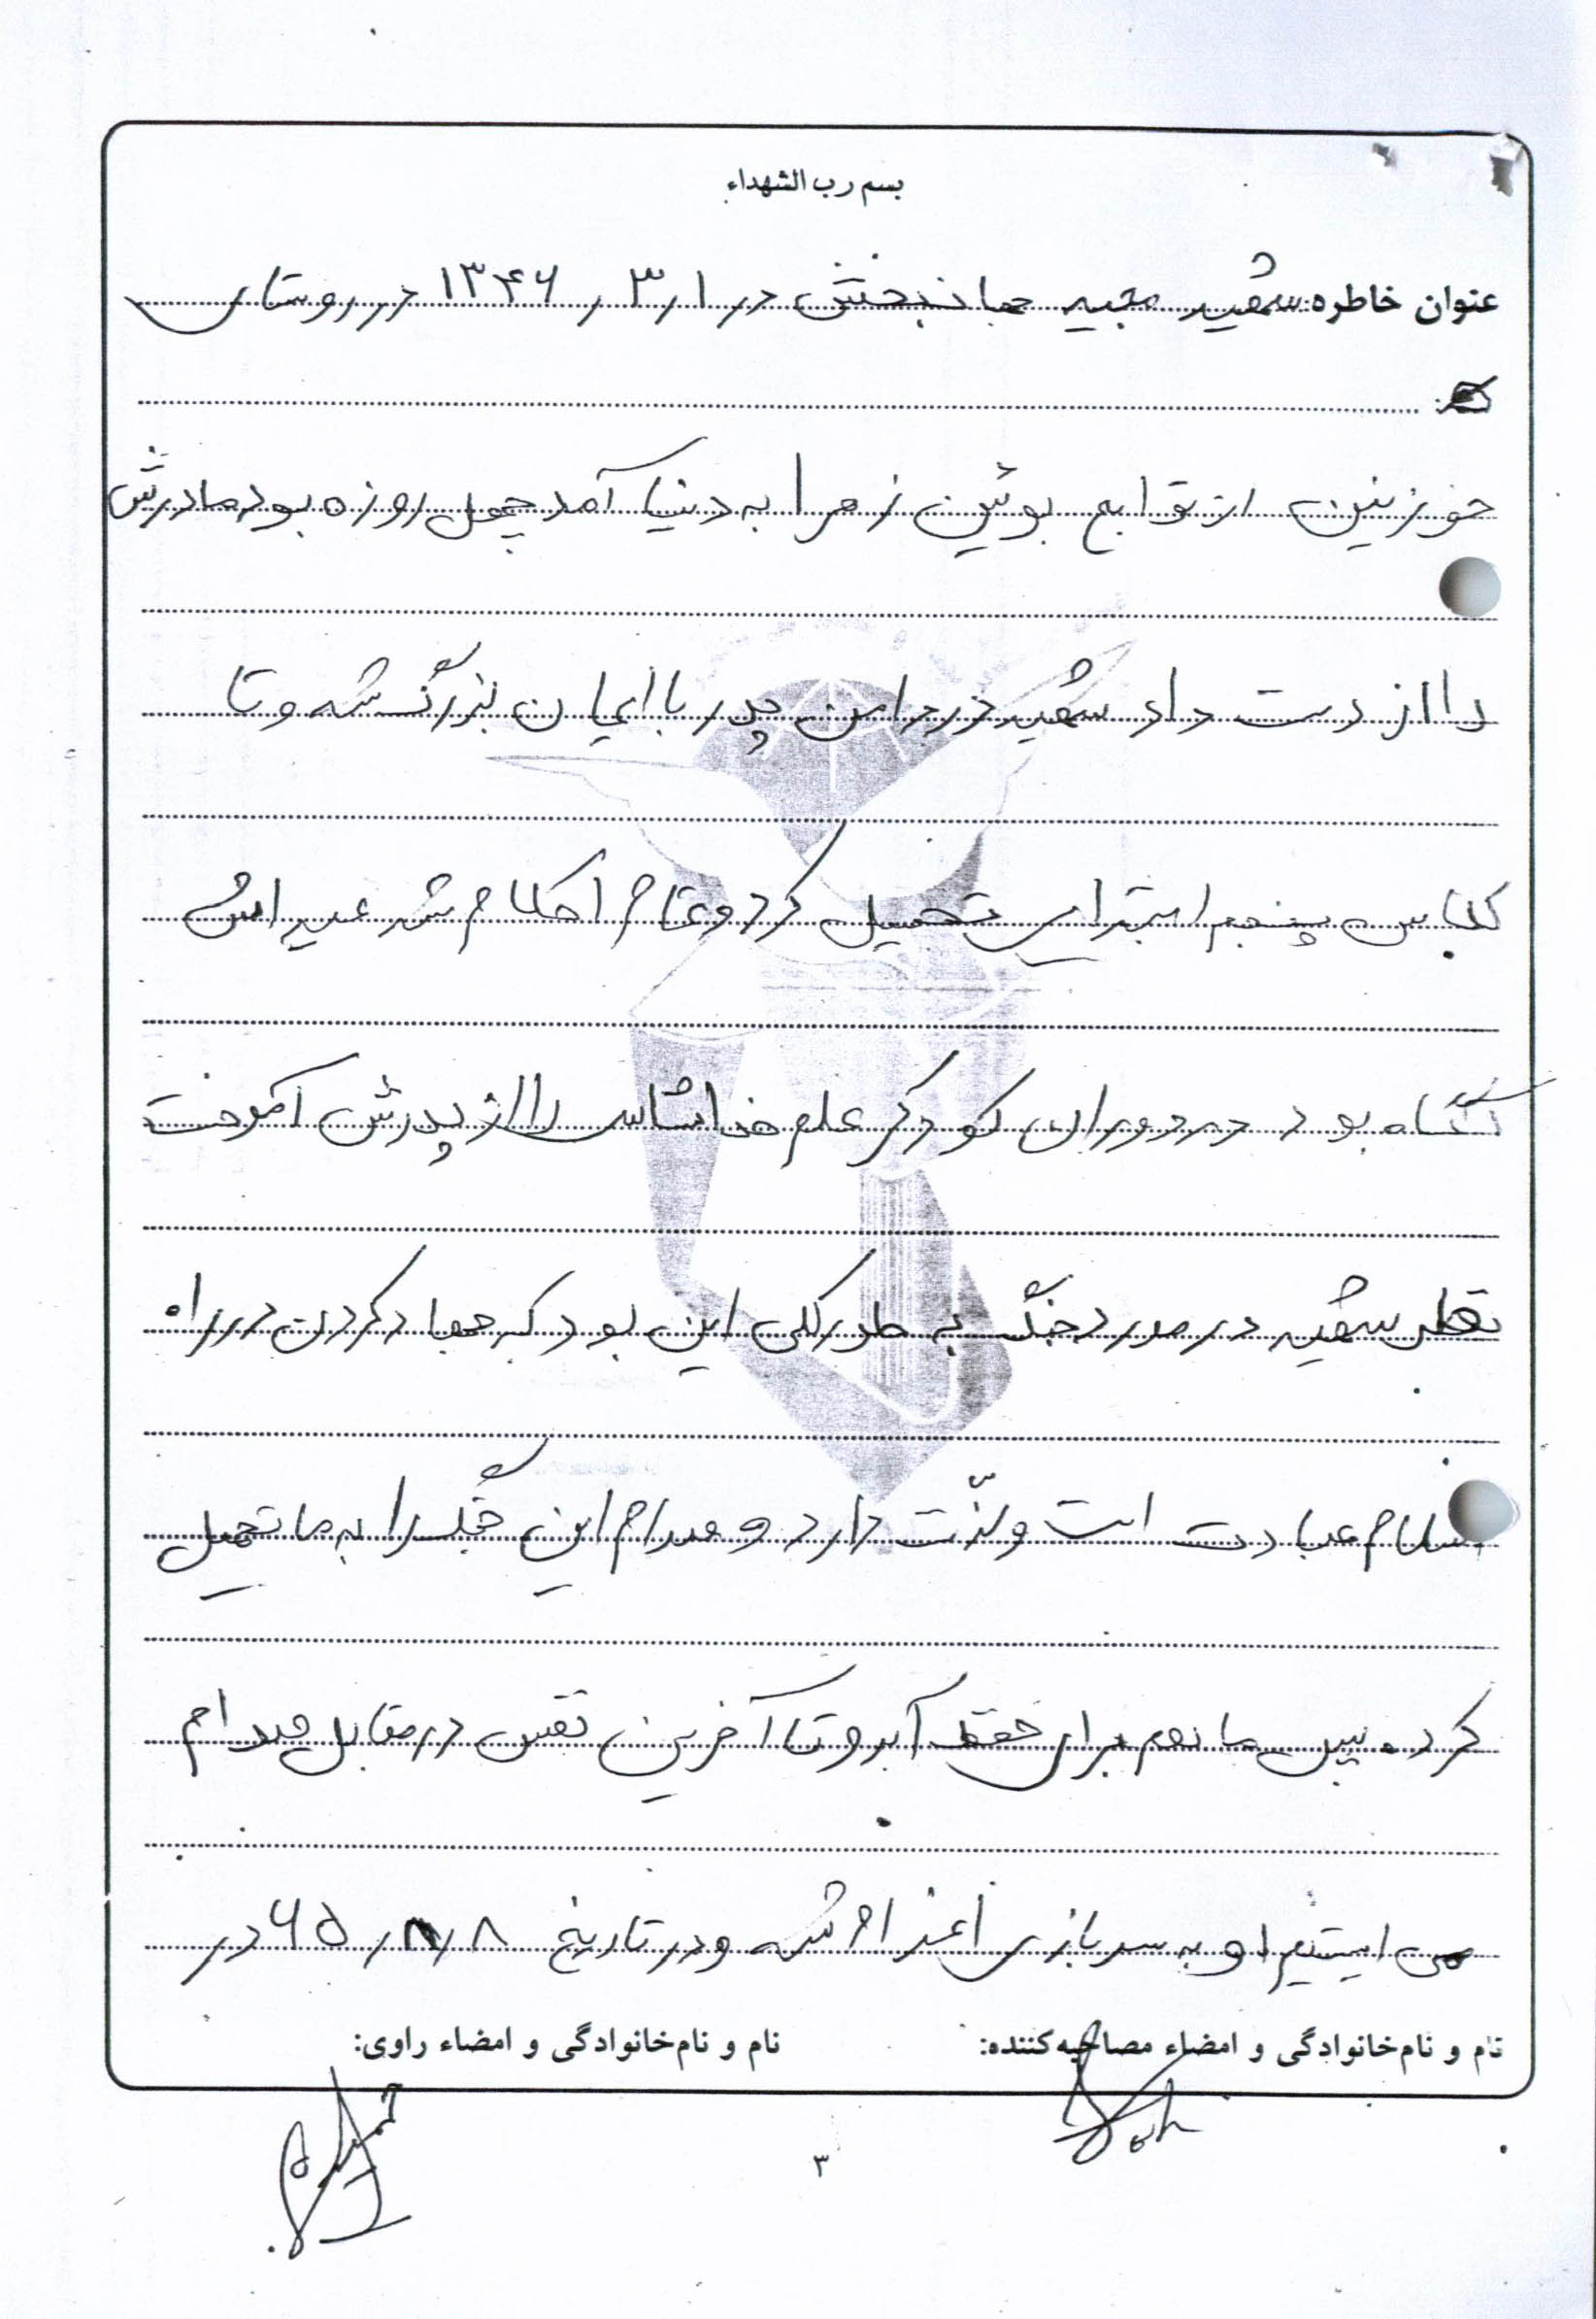 بسم رب الشهداء
عنوان خاطره: شهید مجید جهانبخش در ۱ / ۳ / ۱۳۴۶ در روستای
خوزنین از توابع بوئین زهرا به دنیا آمد چهل روزه بود مادرش
را از دست داد شهید در دامن پدر با ایمان بزرگ شد و تا
کلاس پنجم ابتدایی تحصیل کرد و تمام احکام شرعیه اش
آگاه بود در دوران کودکی علم خداشناسی را از پدرش آموخت
نظر شهید در مورد جنگ به طور کلی این بود که جهاد کردن در راه
اسلام عبادت است و لذّت دارد و صدام این جنگ را به ما تحمیل
کرد. پس ما هم برای حفظ آبرو تا آخرین نفس در مقابل صدام
می ایستیم او به سربازی اعزام شد و در تاریخ ۸ / ۸ / ۶۵ در
نام و نام‌خانوادگی و امضاء مصاحبه‌کننده: نام و نام‌خانوادگی و امضاء راوی:
۳